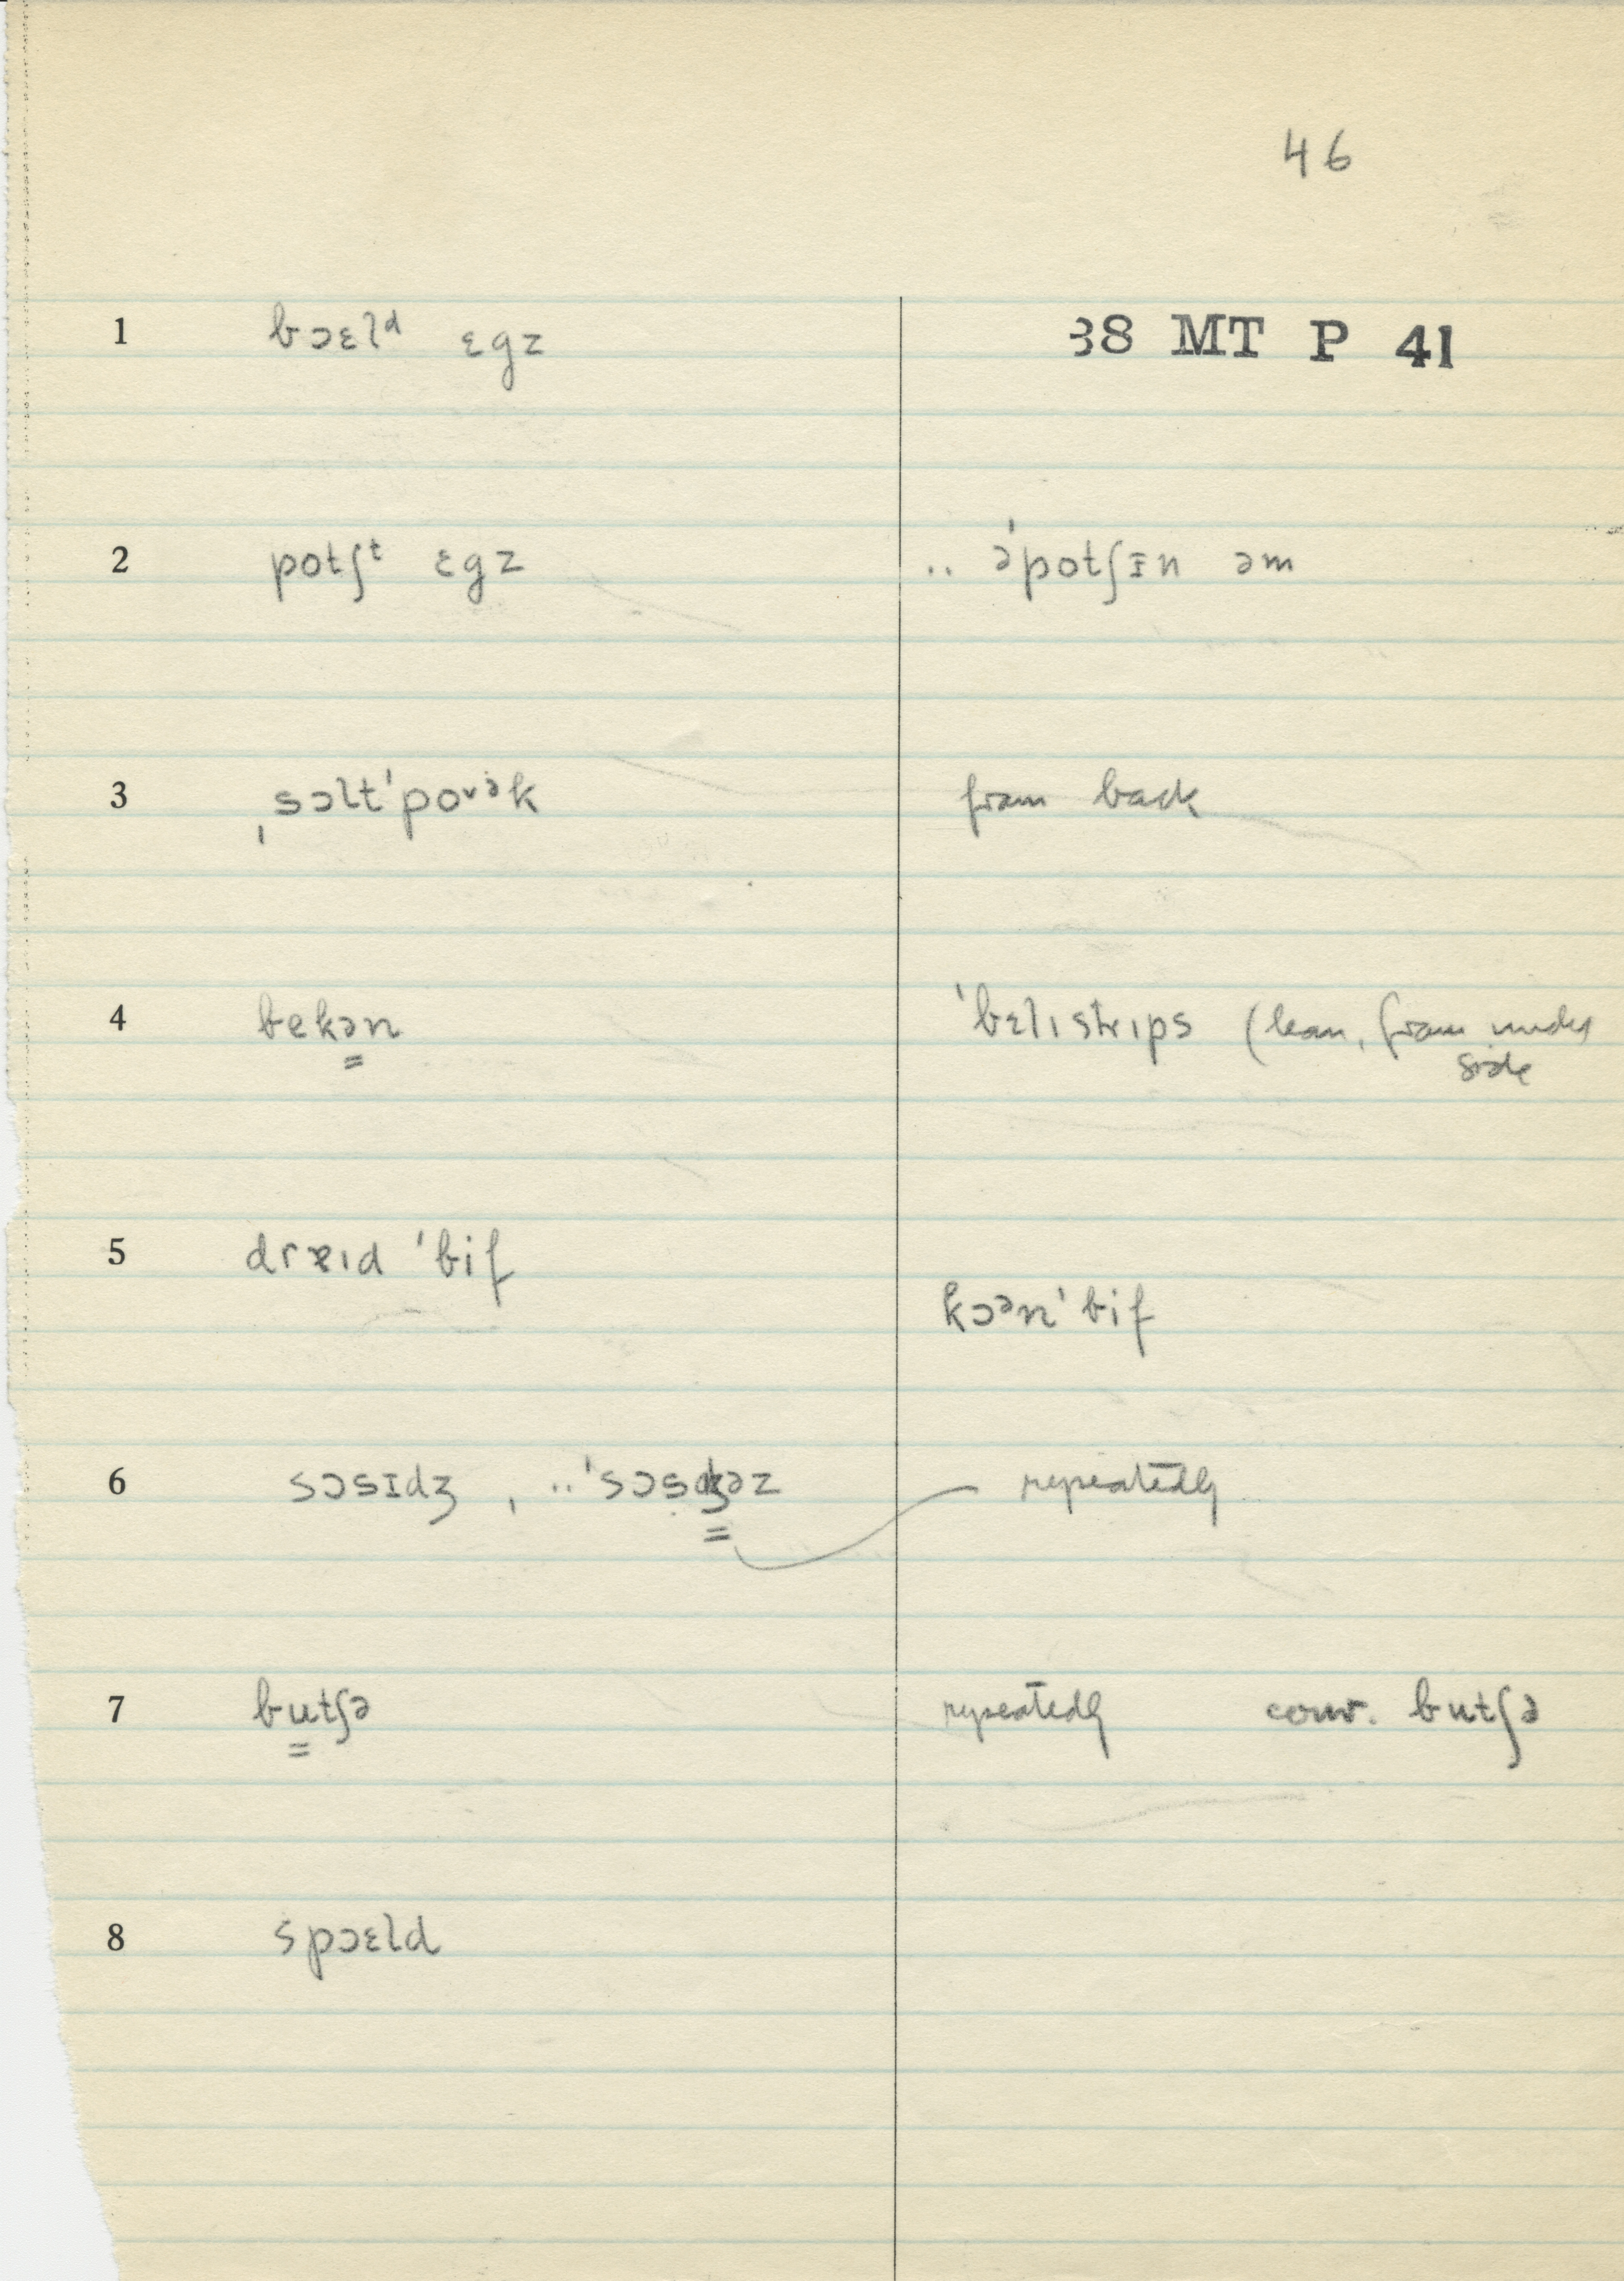 46
1 bɔɛlᵈ ɛgz 38 MT P 41
2 potʃᵗ ɛgz .. ə'potʃɪn əm
3 ˌsɔlt'poᵛᵊk from back
4 bekən 'bɛlɪstrɪps (lean, from under
side
5 drɐɪd 'bif
kɔᵊn'bif
6 sɔsɪdʒ , ..'sɔsdʒəz repeatedly
7 butʃə repeatedly conv. butʃə
8 spɔɛld